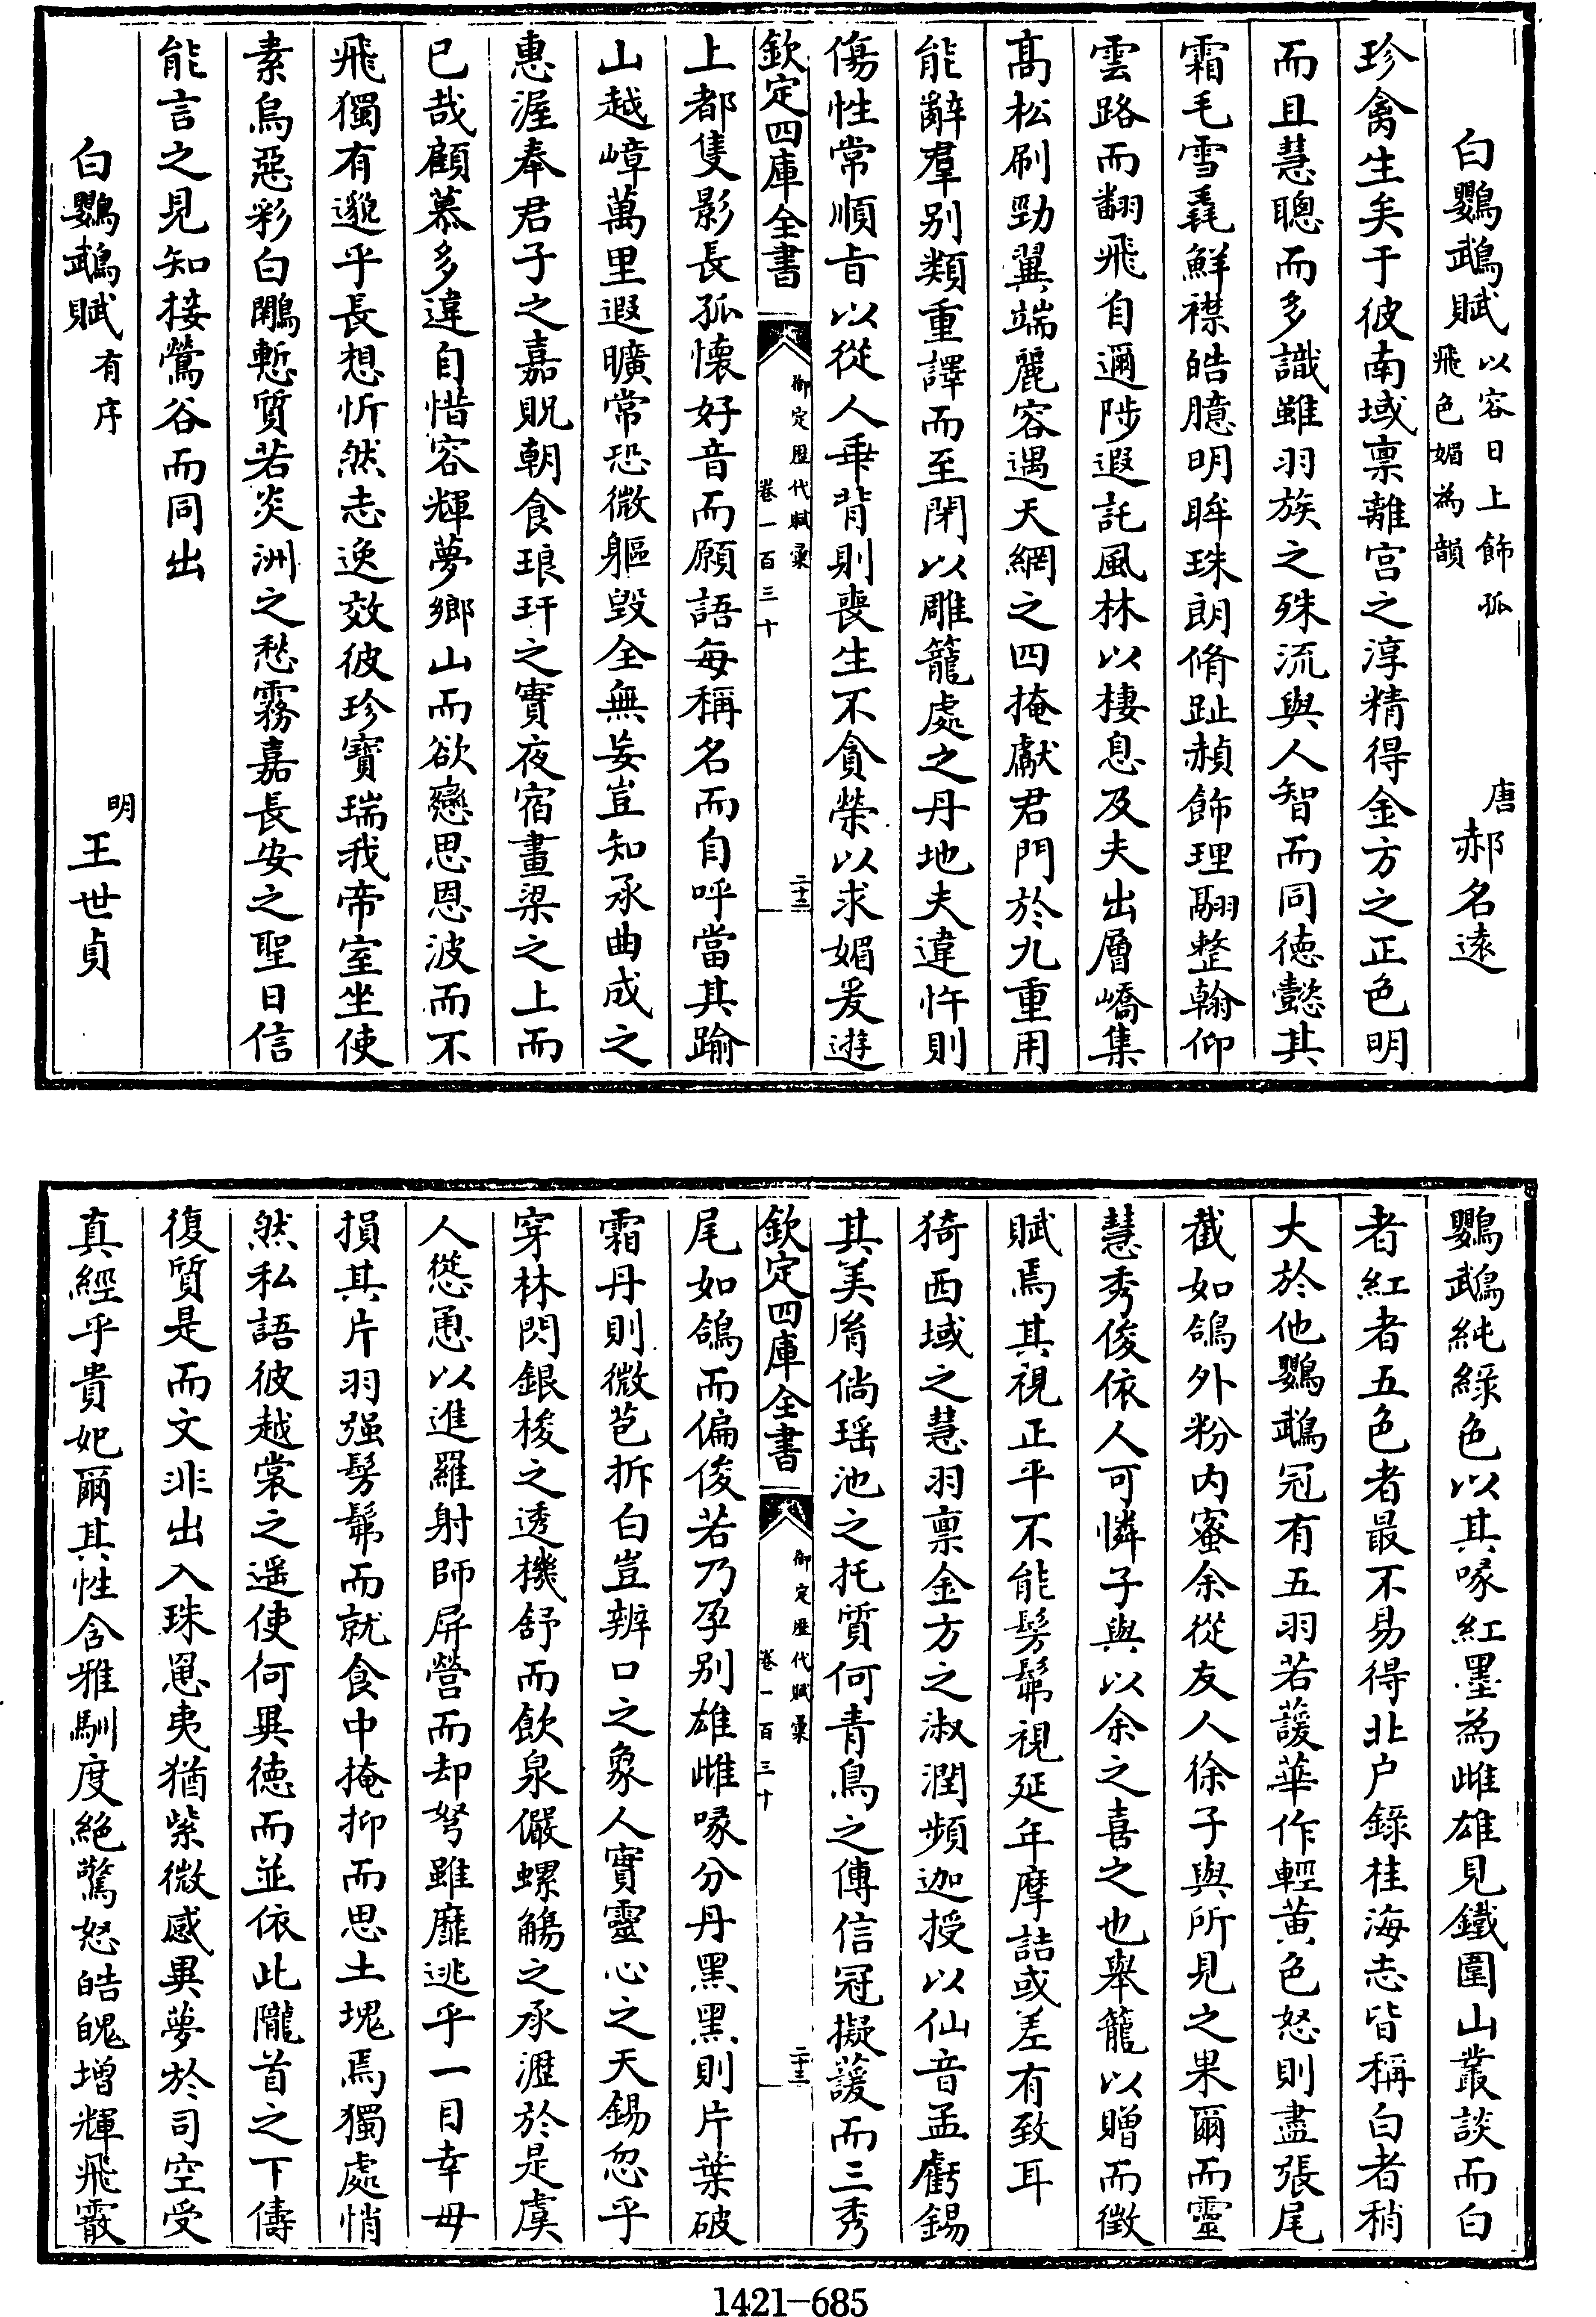 白鸚鵡賦以容日上飾孤飛色媚為韻　唐郝名遠
珍禽生矣于彼南域禀離宫之淳精得金方之正色明
而且慧聰而多識雖羽族之殊流與人智而同徳懿其
霜毛雪毳鮮襟皓臆明眸珠朗脩趾赬飾理翮整翰仰
雲路而翻飛自邇陟遐託風林以棲息及夫出層嶠集
髙松刷勁翼端麗容遇天網之四掩獻君門於九重用
能辭羣别類重譯而至閉以雕籠處之丹地夫違忤則
傷性常順旨以從人乖背則喪生不貪榮以求媚爰遊
欽定四庫全書　御定歴代賦彚卷一百三十　二十二
上都隻影長孤懐好音而願語每稱名而自呼當其踰
山越嶂萬里遐曠常恐微軀毀全無妄豈知承曲成之
惠渥奉君子之嘉貺朝食琅玕之實夜宿畫梁之上而
已哉顧慕多違自惜容輝夢鄉山而欲戀思恩波而不
飛獨有邈乎長想忻然志逸效彼珍寶瑞我帝室坐使
素烏惡彩白鷳慙質若炎洲之愁霧嘉長安之聖日信
能言之見知接鶯谷而同出
白鸚鵡賦有序　明王世貞
鸚鵡純緑色以其喙紅墨為雌雄見鐵圍山叢談而白
者紅者五色者最不易得北户錄桂海志皆稱白者稍
大於他鸚鵡冠有五羽若蘐華作輕黄色怒則盡張尾
截如鴿外粉内蜜余從友人徐子與所見之果爾而靈
慧秀俊依人可憐子與以余之喜之也舉籠以贈而徴
賦焉其視正平不能髣髴視延年摩詰或差有致耳
猗西域之慧羽禀金方之淑潤頻迦授以仙音孟虧錫
其美胤倘瑶池之托質何青鳥之傳信冠擬蘐而三秀
欽定四庫全書　御定歴代賦彚卷一百三十　二十三
尾如鴿而偏俊若乃孕别雄雌喙分丹黑黑則片葉破
霜丹則微苞拆白豈辨口之象人實靈心之天錫忽乎
穿林閃銀梭之透機舒而飲泉儼螺觴之承瀝於是虞
人慫恿以進羅射師屏營而却弩雖靡逃乎一目幸毋
損其片羽强髣髴而就食中掩抑而思土塊焉獨處悄
然私語彼越裳之遥使何異徳而並依此隴首之下儔
復質是而文非出入珠罳夷猶紫微感異夢於司空受
真經乎貴妃爾其性含雅馴度絶驚怒皓魄增輝飛霰
1421-685